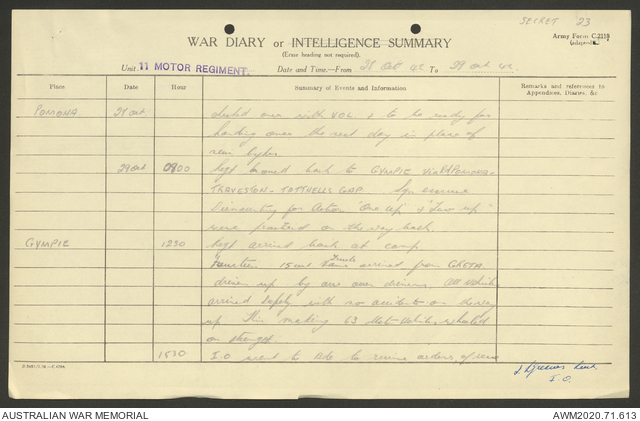 SECRET 23
WAR DIARY or INTELLIGENCE SUMMARY
Army Form C.2118
(Erase heading not required).
Unit 11 MOTOR REGIMENT. Date and Time—From 28 Oct 42 To 29 Oct 42
Place Hour Summary of Events and Information Remarks and references to Appendices, Diaries, &c
POMONA over with to be ready for
handing over the next day in place of
29 Oct 0800 Regt moved back to GYMPIE via POMONA-
TRAVESTON- GAP.
Dismounting for Action 'One up' & 'Two up'
were practised on the way back.
GYMPIE 1230 Regt arrived back at camp.
15 cwt Vans Trucks arrived from GRETA
driven up by our own drivers. All vehicles
arrived safely with no accidents on the way
up. This making 63 vehicles
on strength.
1530 I.O went to Bde to receive orders
Lieut
I.O.
AUSTRALIAN WAR MEMORIAL
AWM2020.71.613